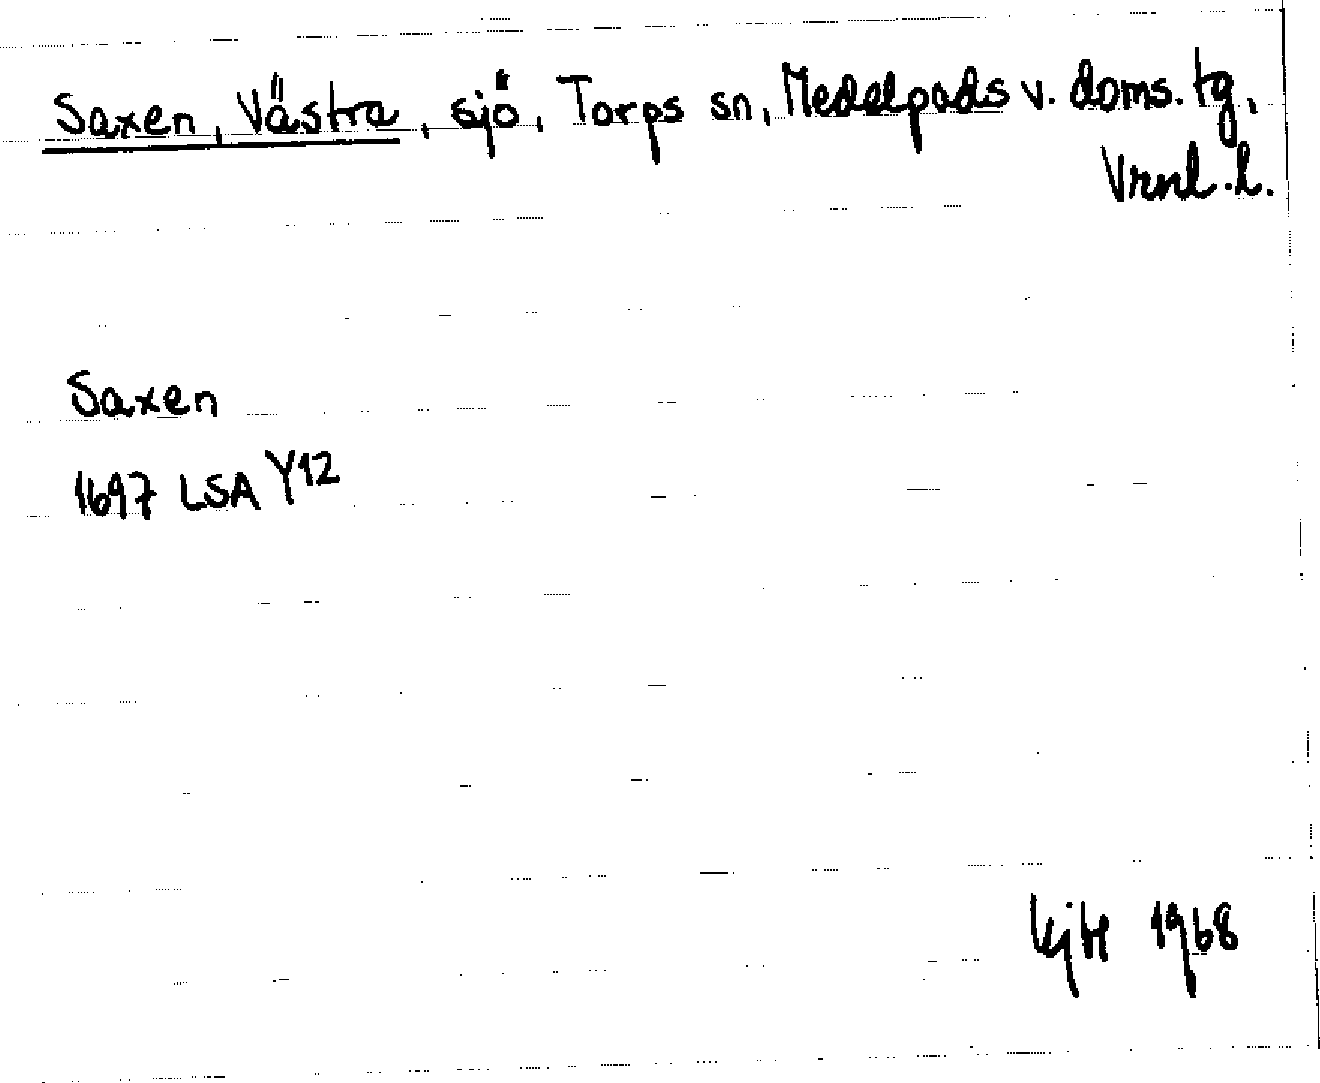 Saxen, Västra, sjö, Torps sn, Medelpads v. doms. tg,
Vrnl. l.
Saxen
1697 LSA Y12
1968